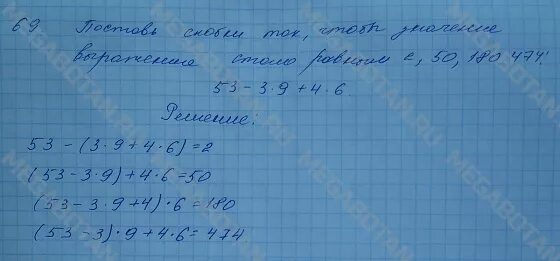 69 Поставь скобки так, чтобы значение
выражение стало равным 2, 50, 180 474.
53 - 3 · 9 + 4 · 6.
Решение:
53 - (3 · 9 + 4 · 6) = 2
(53 - 3 · 9) + 4 · 6 = 50
(53 - 3 · 9 + 4) · 6 = 180
(53 - 3) · 9 + 4 · 6 = 474
MEGABOTAN.RU